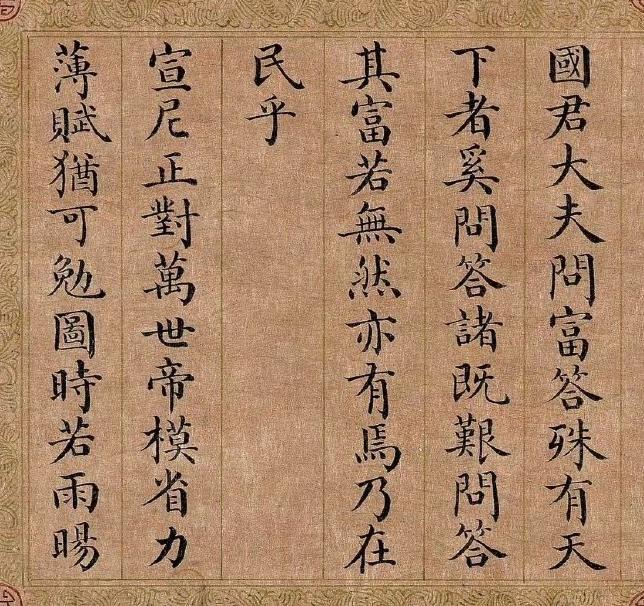 國君大夫問富答殊有天
下者奚問答諸既艱問答
其富若無然亦有焉乃在
民乎
宣尼正對萬世帝模省力
薄賦猶可勉圖時若雨暘